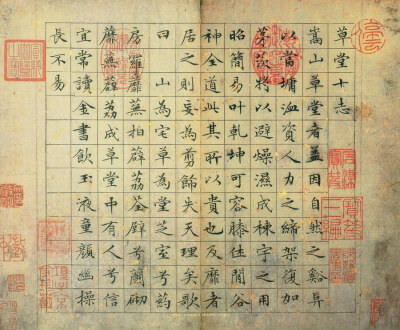 草堂十志
嵩山草堂者盖因自然之谿阜
以當墉洫資人力之縮架復加
茅茨將以避燥濕成棟宇之用
昭簡易叶乾坤可容膝休閒谷
神全道此其所以貴也及靡者
居之則妄為剪飾失天理矣歌
曰山為宅兮草為堂芝室兮葯
房羅蘼蕪拍薜荔荃壁兮蘭砌
蘼蕪薜荔成草堂中有人兮信
宜常讀金書飲玉液童顏幽操
長不易